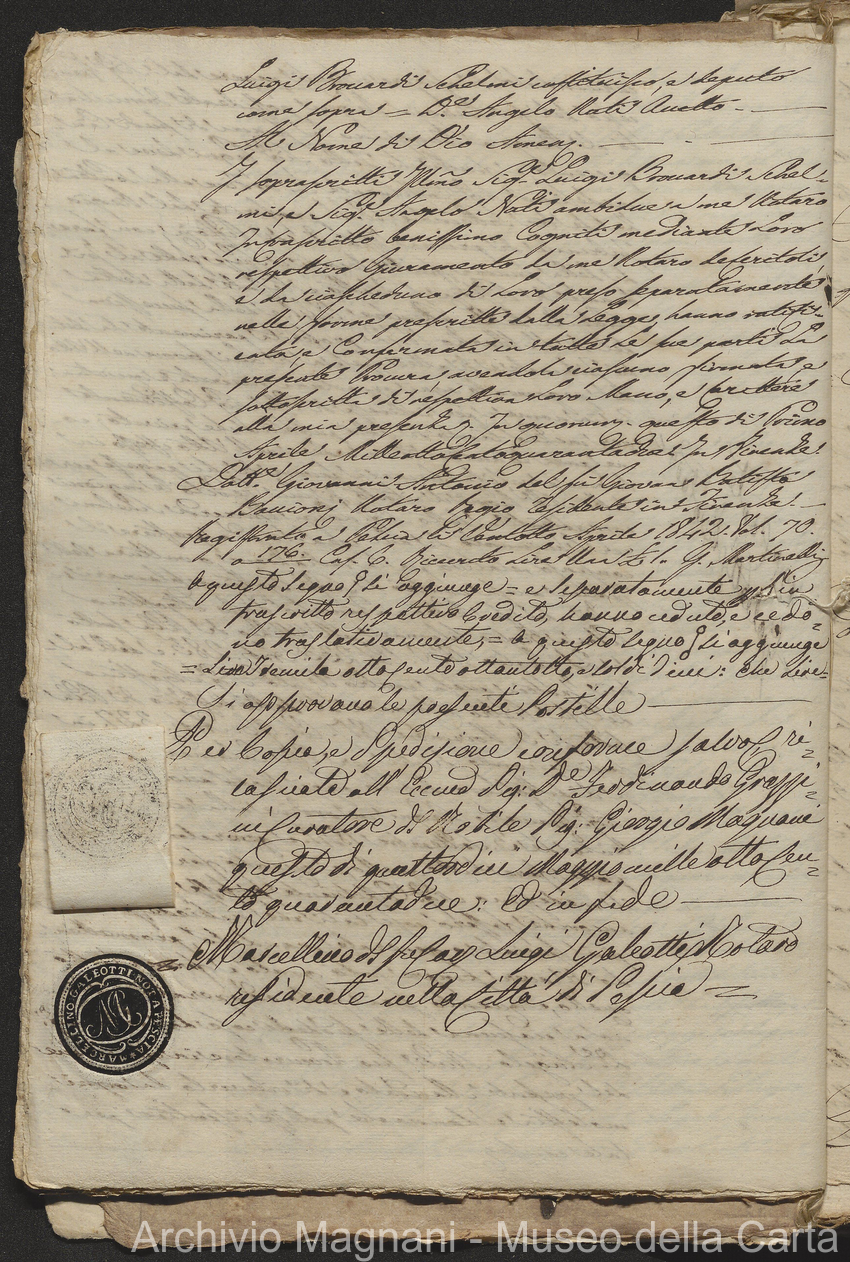 Luigi Brouardi Schelmi costituisco, e deputo
come sopra = D.e Angelo Nuti Avetto. —
Al Nome di Dio Amen. —
I soprascritti Illmo Sig.r Luigi Brouardi Schel=
mi, e Sig.r Angelo Nuti ambidue a me Notaro
Infrascritto benissimo Cogniti mediante Loro
respettivo Giuramento da me Notaro deferitoli
e da ciascheduno di Loro preso separatamente
nelle forme prescritte dalla Legge, hanno ratifi=
cata, e Confermata in tutte le sue parti La
presente Procura avendola ciascuno firmata e
sottoscritta di respettiva Loro Mano, e Carattere
alla mia presenza. In quorum. questo dì Primo
Aprile Milleottocentoquarantadue In Firenze.
Dott.e Giovanni Antonio del fu Giovan Batista
Notaro Regio residente in Firenze. —
Registrata a Pescia li Ventotto Aprile 1842. Vol. 70.
o 176. Cas. 6. Ricevuto Lira Una £1. G. Martinelli
A questo segno § si aggiunge = e separatamente per l'in=
trascritto respettivo Credito, hanno ceduto, e cedo=
no traslativamente, = A questo segno § si aggiunge
= Lire Tremila ottocento ottantotto, e soldi dieci: che Lire=
Si approvano le presenti Postille —
Per Copia, e Spedizione conforme salvo, § ri=
lasciata all' Eccmo Sig: D.e Ferdinando Grassi=
ni Curatore del Nobile Sig: Giorgio Magnani
questo dì quattordici Maggio mille otto cen=
to quarantadue: Ed in fede —
Marcellino del fu Ser Luigi Galeotti Notaro
residente nella Città di Pescia =
MARCELLINO GALEOTTI NOT. A PESCIA
MG
Archivio Magnani - Museo della Carta